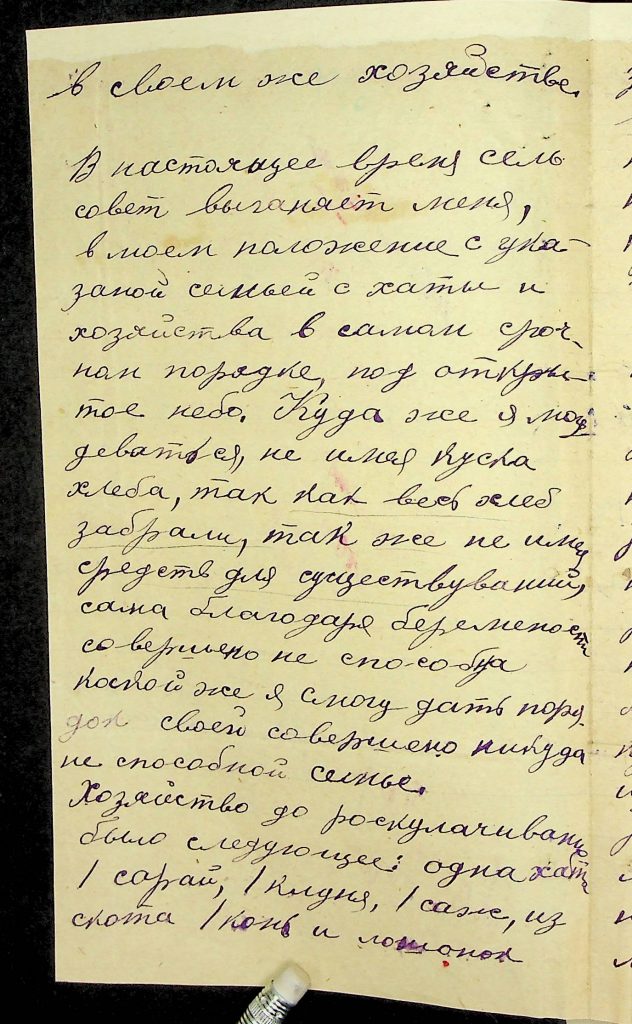 в своем же хозяйстве.
В настоящее время сель
совет выганяет меня,
в моем положение с ука-
заной семьей с хаты и
хозяйства в самом сроч-
ном порядке, под откры-
тое небо. Куда же я могу
деваться, не имея куска
хлеба, так как весь хлеб
забрали, так же не имея
средств для существуваний,
сама благодаря беремености
совершено не способна
коской же я смогу дать поря-
док своей совершено никуда
не способной семье.
Хозяйство до роскулачивание
было следующее: одна хата
1 сарай, 1 клуня, 1 саж, из
скота 1 конь и лошонок